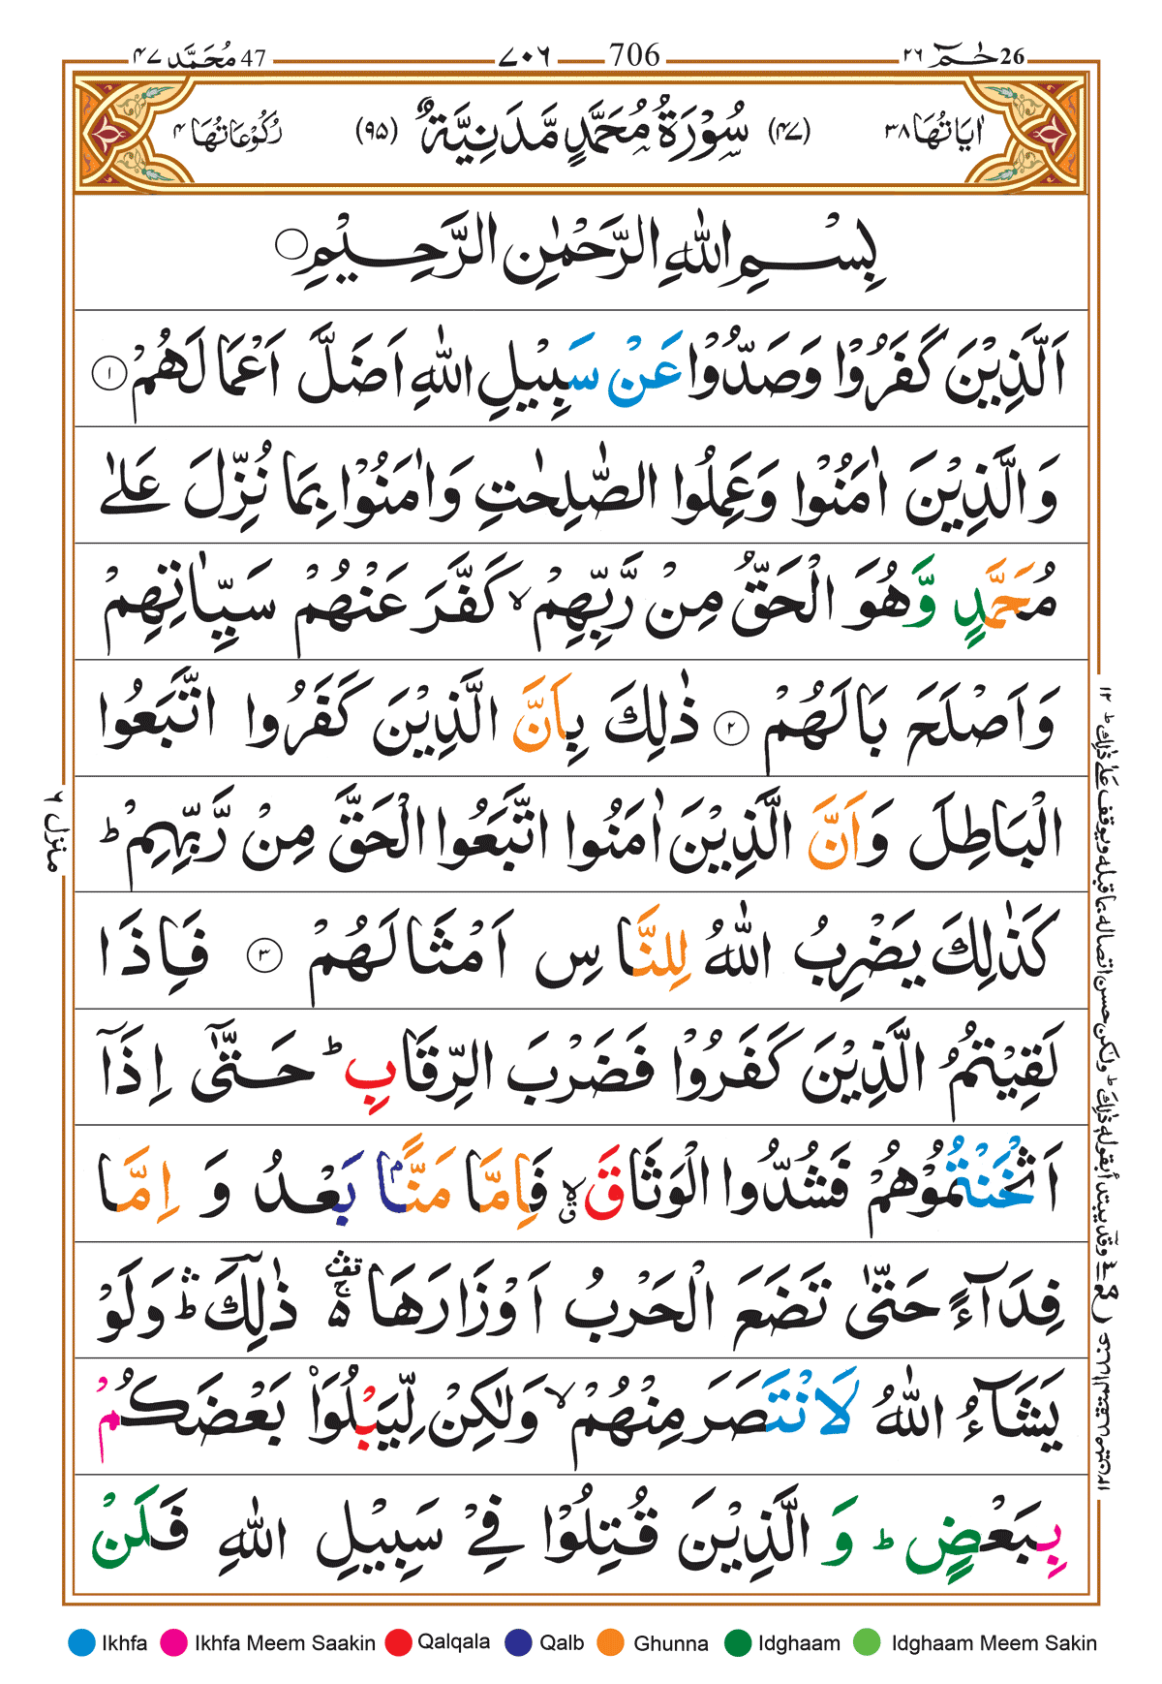 47 مُحَمَّد ٤٧ 706 ٧٠٦ 26 حٰمٓ ٢٦
اٰيَاتُهَا ٣٨ (٤٧) سُوْرَةُ مُحَمَّدٍ مَّدَنِيَّةٌ (٩٥) رُكُوْعَاتُهَا ٤
بِسْمِ اللّٰهِ الرَّحْمٰنِ الرَّحِيْمِ
اَلَّذِيْنَ كَفَرُوْا وَصَدُّوْا عَنْ سَبِيْلِ اللّٰهِ اَضَلَّ اَعْمَالَهُمْ ١
وَالَّذِيْنَ اٰمَنُوْا وَعَمِلُوا الصّٰلِحٰتِ وَاٰمَنُوْا بِمَا نُزِّلَ عَلٰى
مُحَمَّدٍ وَّهُوَ الْحَقُّ مِنْ رَّبِّهِمْ ۙ كَفَّرَ عَنْهُمْ سَيِّاٰتِهِمْ
وَاَصْلَحَ بَالَهُمْ ٢ ذٰلِكَ بِاَنَّ الَّذِيْنَ كَفَرُوا اتَّبَعُوا
الْبَاطِلَ وَاَنَّ الَّذِيْنَ اٰمَنُوا اتَّبَعُوا الْحَقَّ مِنْ رَّبِّهِمْ ؕ
كَذٰلِكَ يَضْرِبُ اللّٰهُ لِلنَّاسِ اَمْثَالَهُمْ ٣ فَاِذَا
لَقِيْتُمُ الَّذِيْنَ كَفَرُوْا فَضَرْبَ الرِّقَابِ ؕ حَتّٰٓى اِذَآ
اَثْخَنْتُمُوْهُمْ فَشُدُّوا الْوَثَاقَ ۙ فَاِمَّا مَنًّۢا بَعْدُ وَ اِمَّا
فِدَآءً حَتّٰى تَضَعَ الْحَرْبُ اَوْزَارَهَا ۛ۬ۚ ذٰلِكَ ؕۛ وَلَوْ
يَشَآءُ اللّٰهُ لَانْتَصَرَ مِنْهُمْ ۙ وَلٰكِنْ لِّيَبْلُوَا۟ بَعْضَكُمْ
بِبَعْضٍ ؕ وَ الَّذِيْنَ قُتِلُوْا فِيْ سَبِيْلِ اللّٰهِ فَلَنْ
منزل ٦
Ikhfa Ikhfa Meem Saakin Qalqala Qalb Ghunna Idghaam Idghaam Meem Sakin